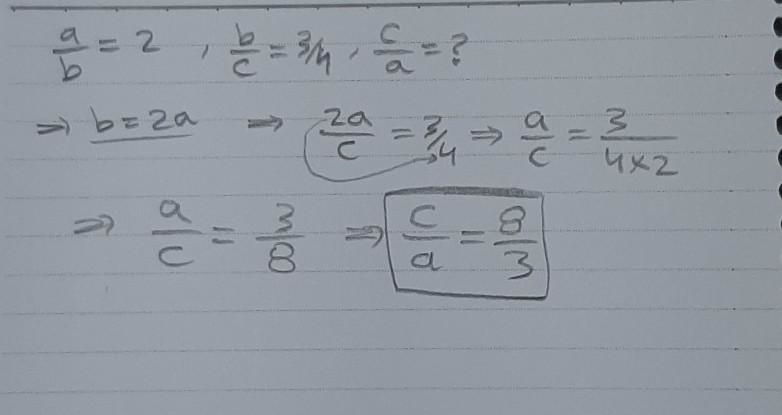 a/b = 2 , b/c = 3/4 , c/a = ?
⇒ b = 2a ⇒ 2a/c = 3/4 ⇒ a/c = 3/(4×2)
⇒ a/c = 3/8 ⇒ c/a = 8/3